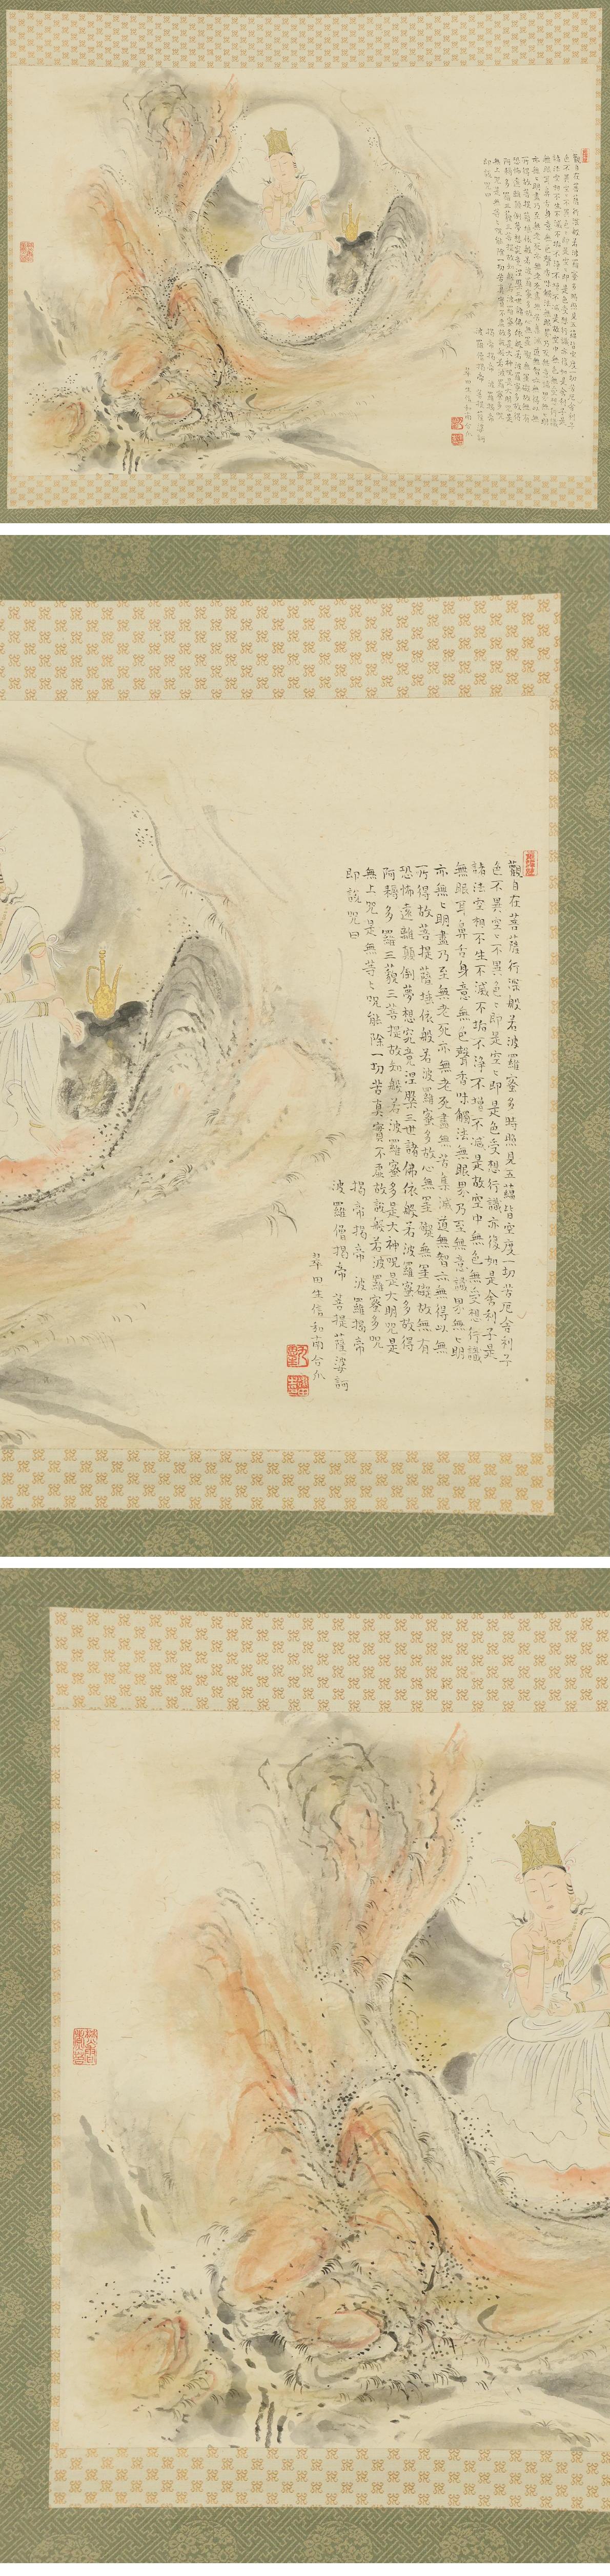 觀自在菩薩行深般若波羅蜜多時照見五蘊皆空度一切苦厄舍利子
色不異空〻不異色〻即是空〻即是色受想行識亦復如是舍利子是
諸法空相不生不滅不垢不浄不増不減是故空中無色無受想行識
無眼耳鼻舌身意無色聲香味觸法無眼界乃至無意識界無〻明
亦無〻明盡乃至無老死亦無老死盡無苦集滅道無智亦無得以無
所得故菩提薩埵依般若波羅蜜多故心無罣礙無罣礙故無有
恐怖遠離顛倒夢想究竟涅槃三世諸佛依般若波羅蜜多故得
阿耨多羅三藐三菩提故知般若波羅蜜多是大神咒是大明咒是
無上咒是無等〻咒能除一切苦真實不虚故説般若波羅蜜多咒
即説咒曰
揭帝揭帝 波羅揭帝
波羅僧揭帝 菩提薩婆訶
田生信和南合爪